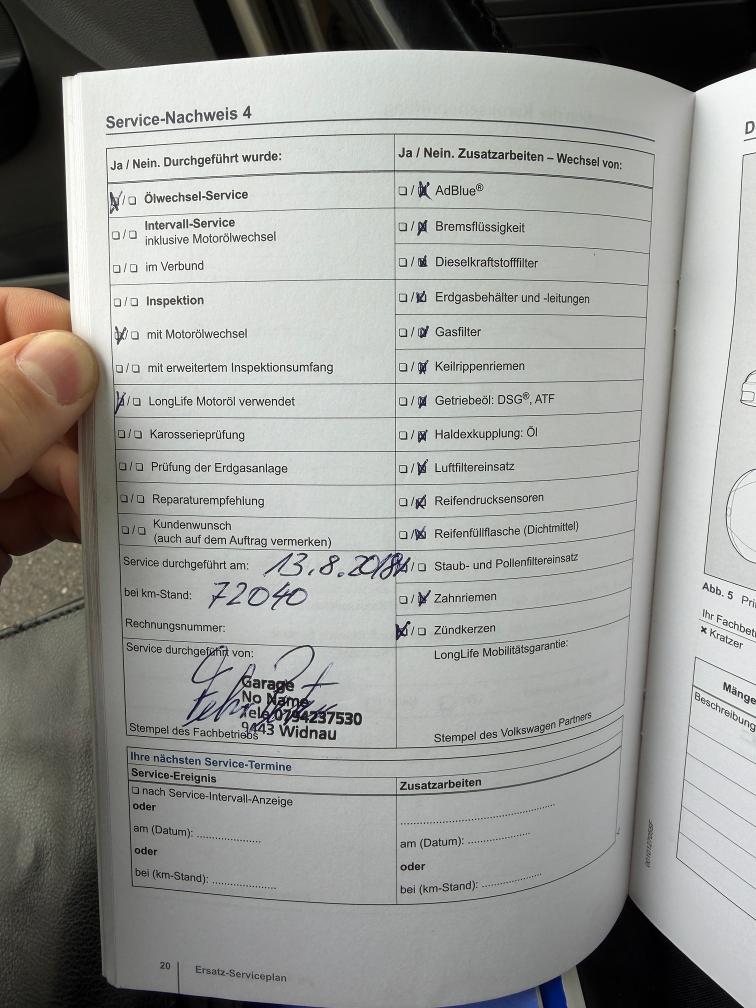 Service-Nachweis 4
Ja / Nein. Durchgeführt wurde:
☒/☐ Ölwechsel-Service
☐/☐ Intervall-Service
inklusive Motorölwechsel
☐/☐ im Verbund
☐/☐ Inspektion
☒/☐ mit Motorölwechsel
☐/☐ mit erweitertem Inspektionsumfang
☒/☐ LongLife Motoröl verwendet
☐/☐ Karosserieprüfung
☐/☐ Prüfung der Erdgasanlage
☐/☐ Reparaturempfehlung
☐/☐ Kundenwunsch
(auch auf dem Auftrag vermerken)
Service durchgeführt am: 13.8.2018
bei km-Stand: 72040
Rechnungsnummer:
Service durchgeführt von:
Garage
No Name
Tele 0794237530
9443 Widnau
Stempel des Fachbetriebs
Ja / Nein. Zusatzarbeiten – Wechsel von:
☐/☒ AdBlue®
☐/☒ Bremsflüssigkeit
☐/☒ Dieselkraftstofffilter
☐/☒ Erdgasbehälter und -leitungen
☐/☒ Gasfilter
☐/☒ Keilrippenriemen
☐/☒ Getriebeöl: DSG®, ATF
☐/☒ Haldexkupplung: Öl
☐/☒ Luftfiltereinsatz
☐/☒ Reifendrucksensoren
☐/☒ Reifenfüllflasche (Dichtmittel)
☒/☐ Staub- und Pollenfiltereinsatz
☐/☒ Zahnriemen
☒/☐ Zündkerzen
LongLife Mobilitätsgarantie:
Stempel des Volkswagen Partners
Ihre nächsten Service-Termine
Service-Ereignis
☐ nach Service-Intervall-Anzeige
oder
am (Datum): ....................
oder
bei (km-Stand): ....................
Zusatzarbeiten
................................................
am (Datum): ....................
oder
bei (km-Stand): ....................
20 Ersatz-Serviceplan
Abb. 5
Ihr Fachbet
✗ Kratzer
Mänge
Beschreibung